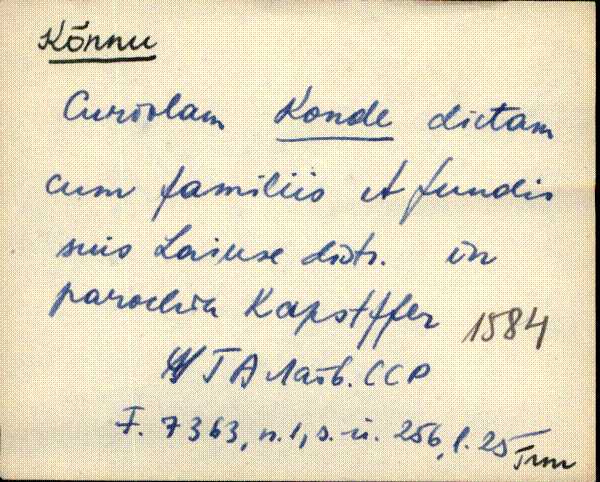 Kõnnu
Curiolam Konde dictam
cum familiis et fundis
suis Laiuse distr. in
parochia Kapstffer 1584
ЦГА Латв. ССР
F. 7363, n. 1, s.-ü. 256, l. 25